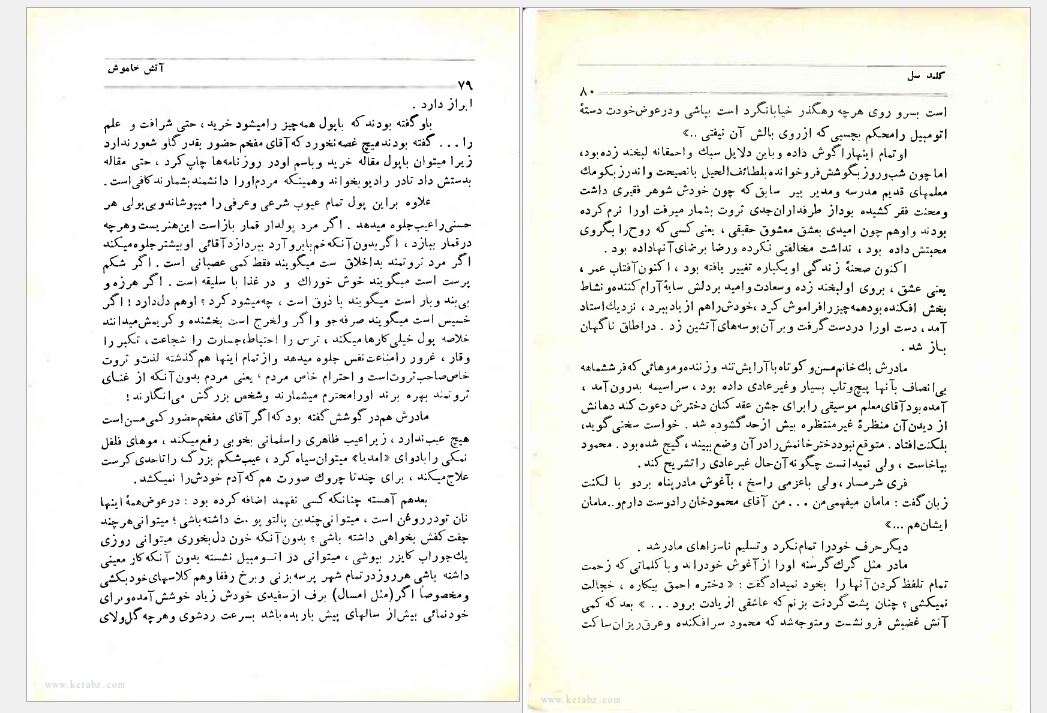 آتش خاموش
۷۹
ابراز دارد .
باو گفته بودند که باپول همه چیز را میشود خرید ، حتی شرافت و علم
را ... گفته بودند هیچ غصه نخورد که آقای مفخم حضور بقدر گاو شعور ندارد
زیرا میتوان باپول مقاله خرید و باسم او در روزنامه‌ها چاپ کرد ، حتی مقاله
بدستش داد تا در رادیو بخواند و همینکه مردم او را دانشمند بشمارند کافی است .
علاوه بر این پول تمام عیوب شرعی و عرفی را میپوشاند و بی‌پولی هر
حسنی را عیب جلوه میدهد . اگر مرد پولدار قمار باز است این هنریست و هر چه
در قمار ببازد ، اگر بدون آنکه خم بابرو آرد بپردازد آقائی او بیشتر جلوه میکند
اگر مرد ثروتمند بد اخلاق ست میگویند فقط کمی عصبانی است . اگر شکم
پرست است میگویند خوش خوراك و در غذا با سلیقه است . اگر هرزه و
بی‌بند و بار است میگویند با ذوق است ، چه میشود کرد ؟ او هم دل دارد ! اگر
خسیس است میگویند صرفه‌جو و اگر ولخرج است بخشنده و کریمش میدانند
خلاصه پول خیلی کارها میکند ، ترس را احتیاط، جسارت را شجاعت ، تکبر را
وقار ، غرور را مناعت نفس جلوه میدهد و از تمام اینها هم گذشته لذت و ثروت
خاص صاحب ثروت است و احترام خاص مردم ؛ یعنی مردم بدون آنکه از غنای
ثروتمند بهره برند او را محترم میشمارند و شخص بزرگش می‌انگارند !
مادرش هم در گوشش گفته بود که اگر آقای مفخم حضور کمی مسن است
هیچ عیب ندارد ، زیرا عیب ظاهری را سلمانی بخوبی رفع میکند ، موهای فلفل
نمکی را با دوای «امدیا» میتوان سیاه کرد ، عیب شکم بزرگ را تا حدی کرست
علاج میکند ، برای چند تا چروك صورت هم که آدم خودش را نمیکشد .
بعد هم آهسته چنانکه کسی نفهمد اضافه کرده بود : در عوض همهٔ اینها
نان تو در روغن است ، میتوانی چندین پالتو پوست داشته باشی ؛ میتوانی هر چند
جفت کفش بخواهی داشته باشی ؟ بدون آنکه خون دل بخوری میتوانی روزی
یك جوراب کایزر بپوشی ، میتوانی در اتومبیل نشسته بدون آنکه کار معینی
داشته باشی هر روز در تمام شهر پرسه بزنی و برخ رفقا و هم کلاسهای خود بکشی
و مخصوصاً اگر (مثل امسال) برف از سفیدی خودش زیاد خوشش آمده و برای
خودنمائی بیش از سالهای پیش باریده باشد بسرعت رد شوی و هر چه گل ولای
www.ketabz.com
گلبد سل
۸۰
است بسر و روی هر چه رهگذر خیابانگرد است بپاشی و در عوض خودت دستهٔ
اتومبیل را محکم بچسبی که از روی بالش آن نیفتی ..»
او تمام اینها را گوش داده و باین دلایل سبك و احمقانه لبخند زده بود،
اما چون شب و روز بگوشش فرو خوانده بلطائف‌الحیل با نصیحت و اندرز بکومك
معلمهای قدیم مدرسه و مدیر پیر سابق که چون خودش شوهر فقیری داشت
و محنت فقر کشیده بود از طرفداران جدی ثروت بشمار میرفت او را نرم کرده
بودند و او هم چون امیدی بعشق معشوق حقیقی ، یعنی کسی که روح را بگروی
محبتش داده بود ، نداشت مخالفتی نکرده و رضا برضای آنها داده بود .
اکنون صحنهٔ زندگی او یکباره تغییر یافته بود ، اکنون آفتاب عمر ،
یعنی عشق ، بروی او لبخند زده و سعادت و امید بر دلش سایهٔ آرام کننده و نشاط
بخش افکنده بود همه چیز را فراموش کرد ، خودش را هم از یاد ببرد ، نزدیك استاد
آمد ، دست او را در دست گرفت و بر آن بوسه‌های آتشین زد . در اطاق ناگهان
باز شد .
مادرش یك خانم مسن و کوتاه با آرایش تند و زننده و موهائی که فر ششماهه
بی‌انصاف بآنها پیچ و تاب بسیار و غیر عادی داده بود ، سراسیمه بدرون آمد ،
آمده بود آقای معلم موسیقی را برای جشن عقد کنان دخترش دعوت کند دهانش
از دیدن آن منظرهٔ غیر منتظره بیش از حد گشوده شد . خواست سخنی گوید،
بلکنت افتاد . متوقع نبود دختر خانمش را در آن وضع ببیند ، گیج شده بود . محمود
بپا خاست ، ولی نمیدانست چگونه آن حال غیر عادی را تشریح کند .
فری شرمسار ، ولی با عزمی راسخ ، بآغوش مادر پناه برد و با لکنت
زبان گفت : مامان میفهمی من ... من آقای محمود خان را دوست دارم و.. مامان
ایشان هم ...»
دیگر حرف خود را تمام نکرد و تسلیم ناسزاهای مادر شد .
مادر مثل گرگ گرسنه او را از آغوش خود راند و با کلماتی که زحمت
تمام تلفظ کردن آنها را بخود نمیداد گفت : « دختره احمق بیکاره ، خجالت
نمیکشی ؟ چنان پشت گردنت بزنم که عاشقی از یادت برود ... » بعد که کمی
آتش غضبش فرو نشست و متوجه شد که محمود سر افکنده و عرق ریزان ساکت
www.ketabz.com